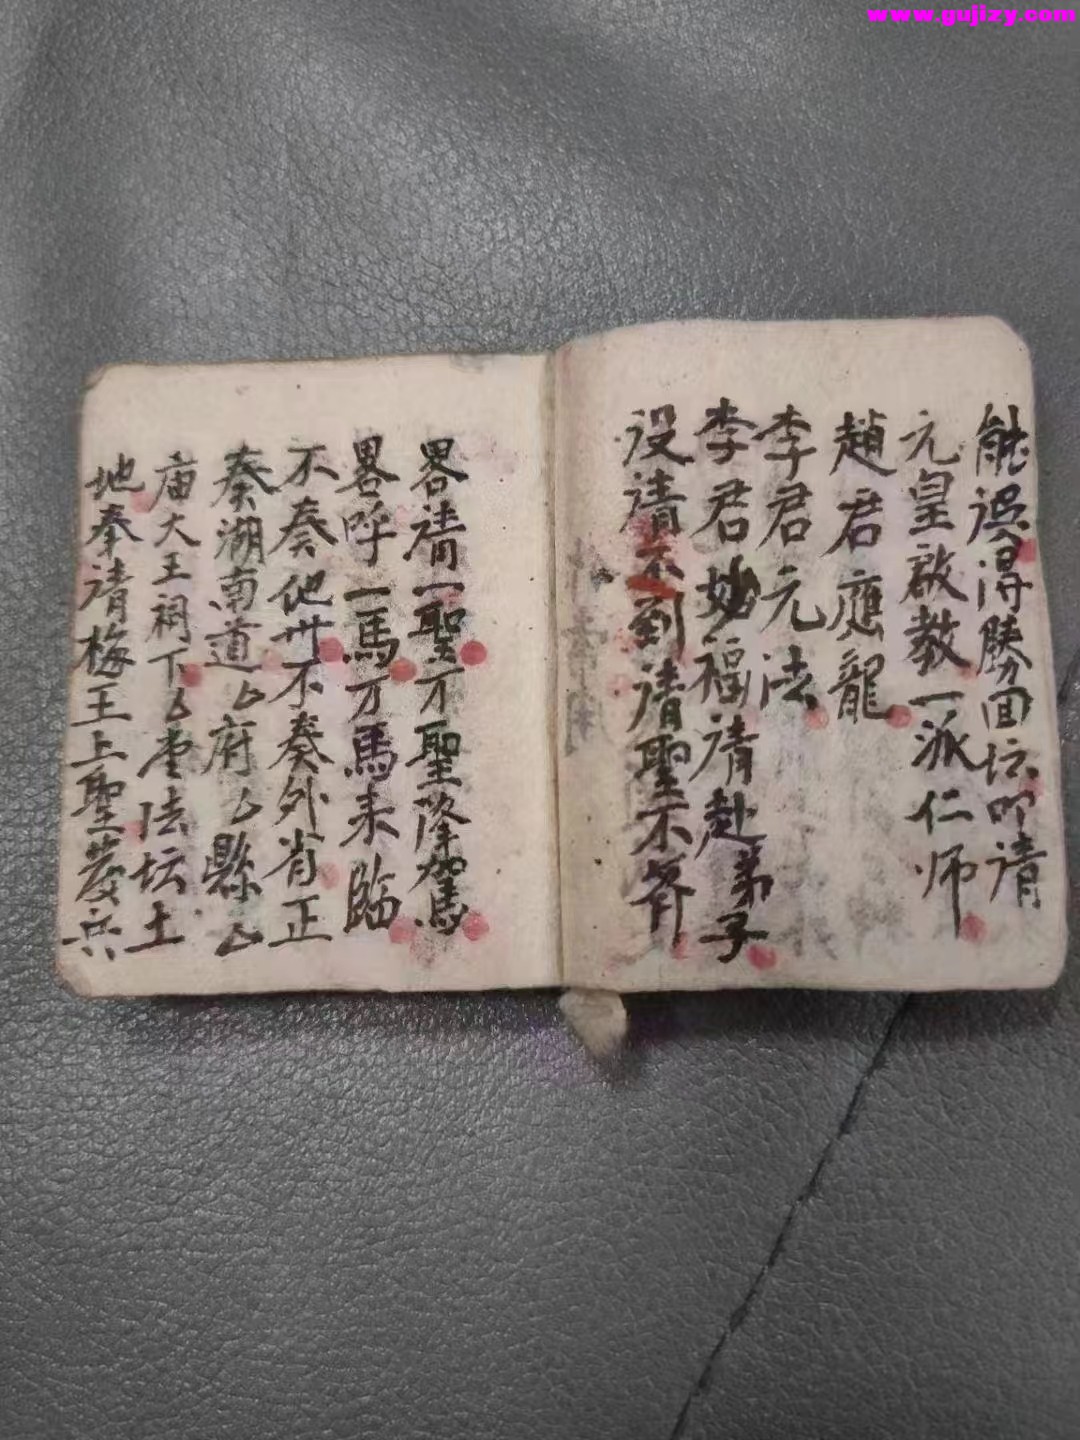 www.gujizy.com
能誤得勝回坛叩请
元皇啟教一派仁师
趙君應龍
李君元法
李君妙福请赴弟子
设请不到请聖不齐
畧请一聖万聖降駕
畧呼一馬万馬来臨
不奏他卅不奏外省正
奏湖南道厶府厶縣厶
庙大王祠下厶堂法坛土
地奉请梅王上聖發兵